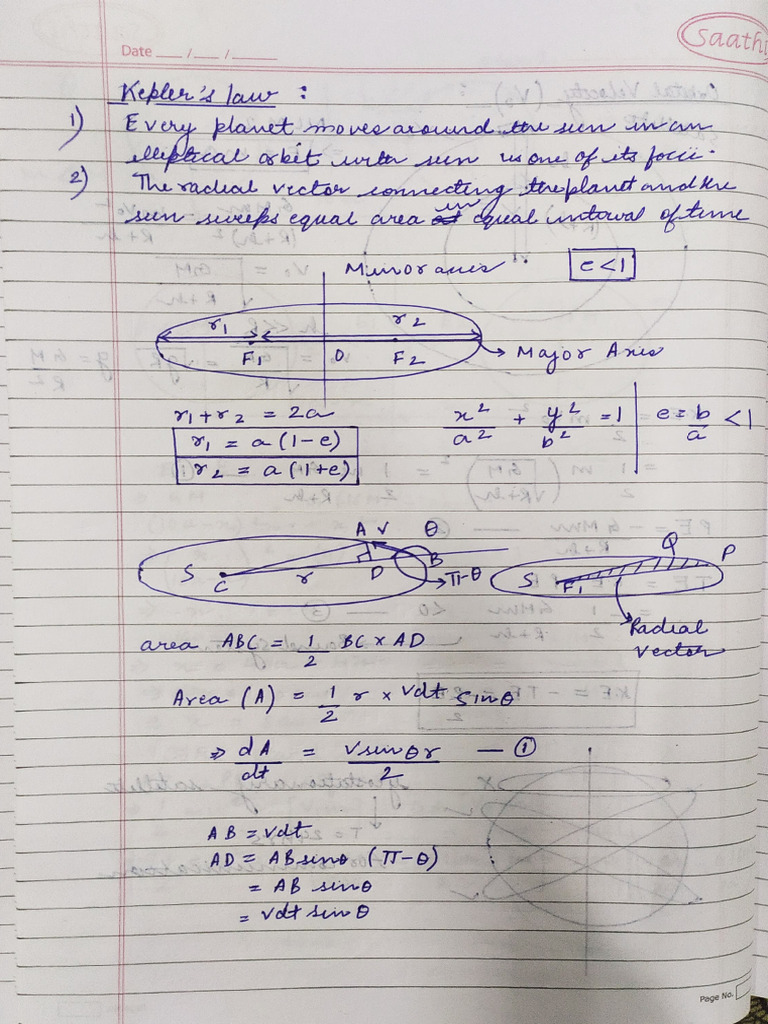 Saathi
Date __/__/____
Kepler's law :
1) Every planet moves around the sun in an
elliptical orbit with sun as one of its focii.
2) The radial vector connecting the planet and the
sun sweeps equal area in equal interval of time
Minor axis e < 1
r₁ r₂
F₁ O F₂ → Major Axis
r₁ + r₂ = 2a x²/a² + y²/b² = 1 | e = b/a < 1
r₁ = a (1-e)
r₂ = a (1+e)
A V θ Q P
S C r D B π-θ S F₁
Radial
vector
area ABC = 1/2 BC × AD
Area (A) = 1/2 r × vdt sinθ
⇒ dA/dt = vsinθr/2 — ①
AB = vdt
AD = AB sinθ (π-θ)
= AB sinθ
= vdt sinθ
Page No.